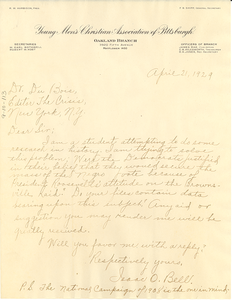 Young Men's Christian Association of Pittsburgh
OAKLAND BRANCH
April 21, 1929
Dr. Du Bois,
Editor The Crisis
New York, N.Y.
Dear Sir:
I am a student attempting to do some
research in history. I am trying to solve
this problem, "Were the Democrats justified
in their belief that they would secure the
mass of the Negro vote because of
President Roosevelt's attitude on the Browns-
ville Raid." Do your files contain data
bearing upon this subject? Any aid or
suggestion you may render me will be
gratefully received.
Will you favor me with a reply?
Respectively yours,
Isaac C. Bell
P.S. The National Campaign of 1908 is the one in mind.